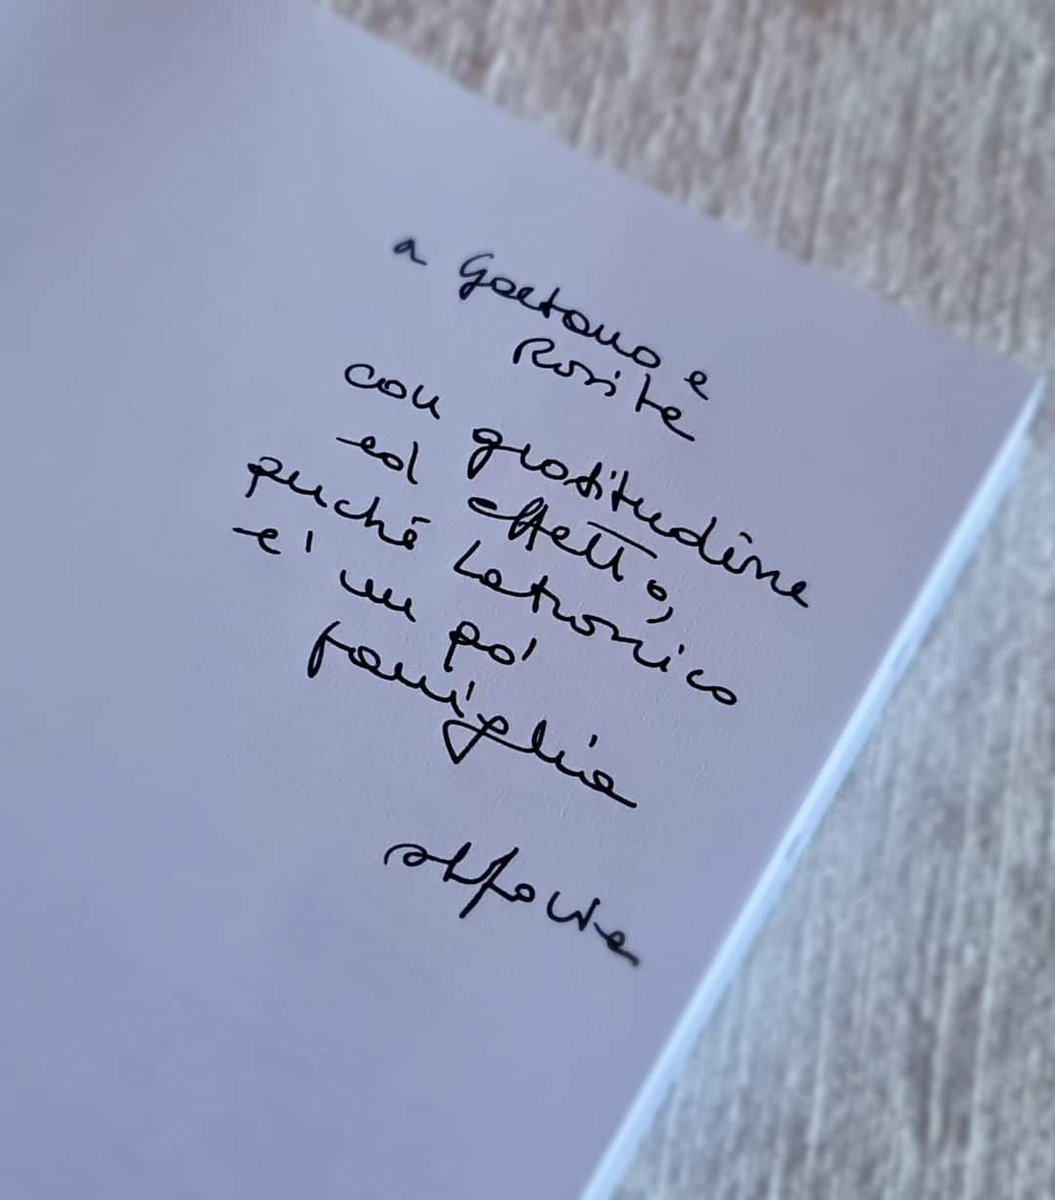 a Gaetano e
Rosita
con gratitudine
ed affetto,
perché Latronico
e' un po'
famiglia